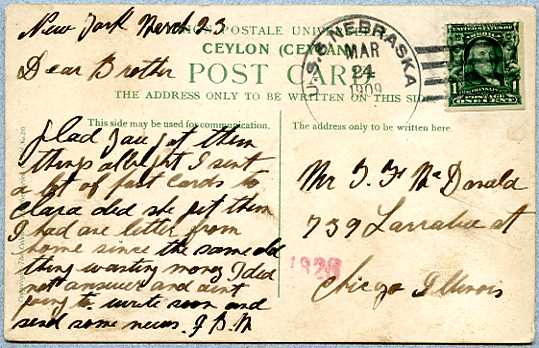 New York March 23
UNION POSTALE UNIVERSELLE
CEYLON (CEYLAN)
Dear Brother
POST CARD
THE ADDRESS ONLY TO BE WRITTEN ON THIS SIDE
U.S.S NEBRASKA
MAR
24
1909
1 1
ONE CENT
This side may be used for communication.
The address only to be written here.
glad you got them
things allright I sent
a lot of post cards to
Clara did she get them
I had one letter from
home since the same old
thing wanting money I did
not answer and aint
going to. write soon and
send some news. J B M
Mr J. F. McDonald
739 Larrabee st
Chicago Illinois